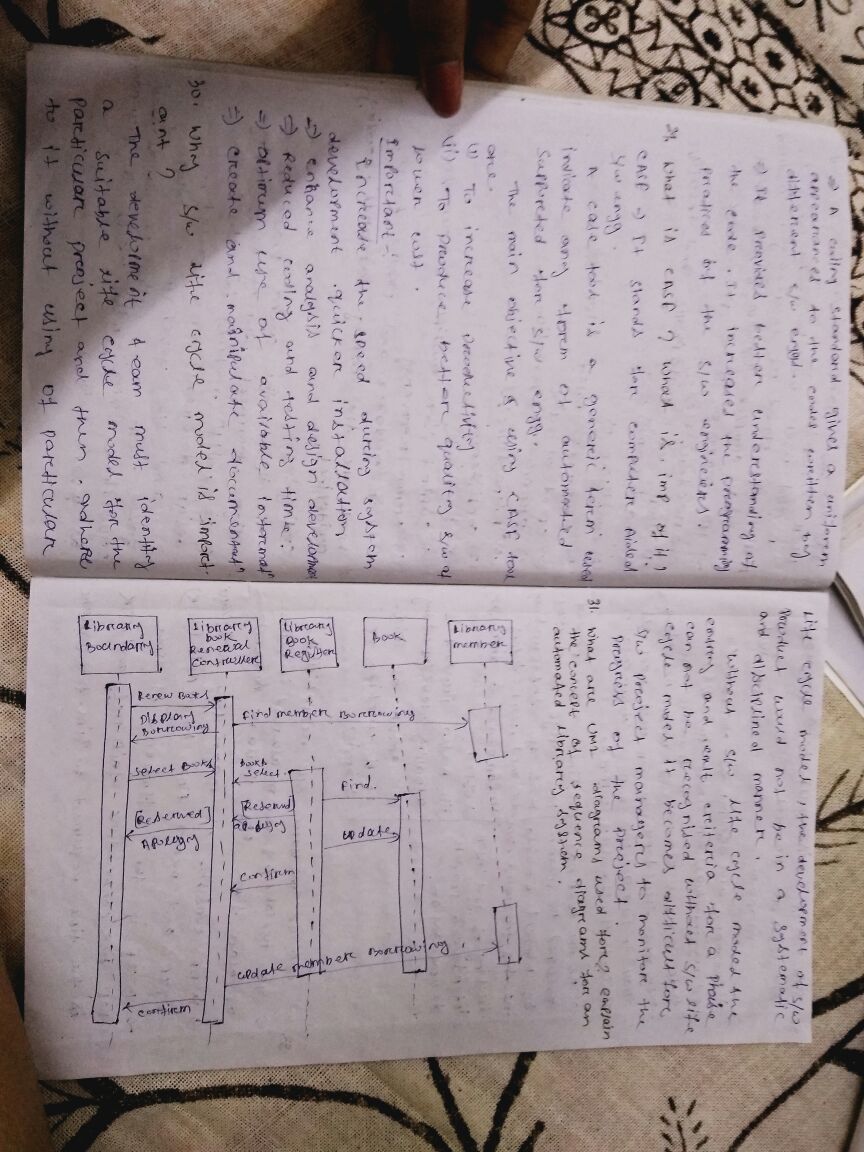 ⇒ A coding standard gives a uniform
appearances to the codes written by
different s/w engg.
⇒ It provides better understanding of
the code. It increases the programming
practices of the s/w engineers.
29. What is CASE ? What is imp of it ?
CASE ⇒ It stands for computer Aided
s/w engg.
A case tool is a generic term used
indicate any form of automated
supported for s/w engg.
The main objective of using CASE tool
are.
(i) To increase productivity
(ii) To produce better quality s/w at
lower cost.
Important -
Increase the speed during system
development. quicker installation
⇒ enhance analysis and design development
⇒ Reduced coding and testing time.
⇒ optimum use of available informat
⇒ create and manipulate documentat
30. Why s/w life cycle model is import
ant ?
The development team must identify
a suitable life cycle model for the
particular project and then adhere
to it without using of particular
life cycle model, the development of s/w
product would not be in a systematic
and disciplined manner.
without s/w life cycle model the
entry and exit criteria for a phase
can not be recognised without s/w life
cycle model it becomes difficult for
s/w project managers to monitor the
progress of the project.
31. What are UML diagrams used for? explain
the concept of sequence diagrams for an
automated library system.
Library
Boundary
Library
book
Renewal
Controller
Library
Book
Register
Book
Library
member
Renew Books
Find member Borrowing
Display
Borrowing
select Books
Book
select
Find.
[Reserved]
Apology
[Reserved]
apology
update
confirm
update member Borrowing
confirm